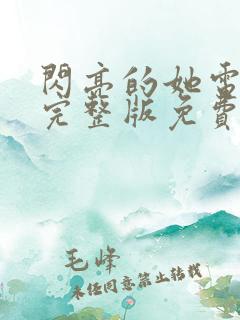 閃亮的她雷
完整版免費
毛峰
未任同意禁止轉載